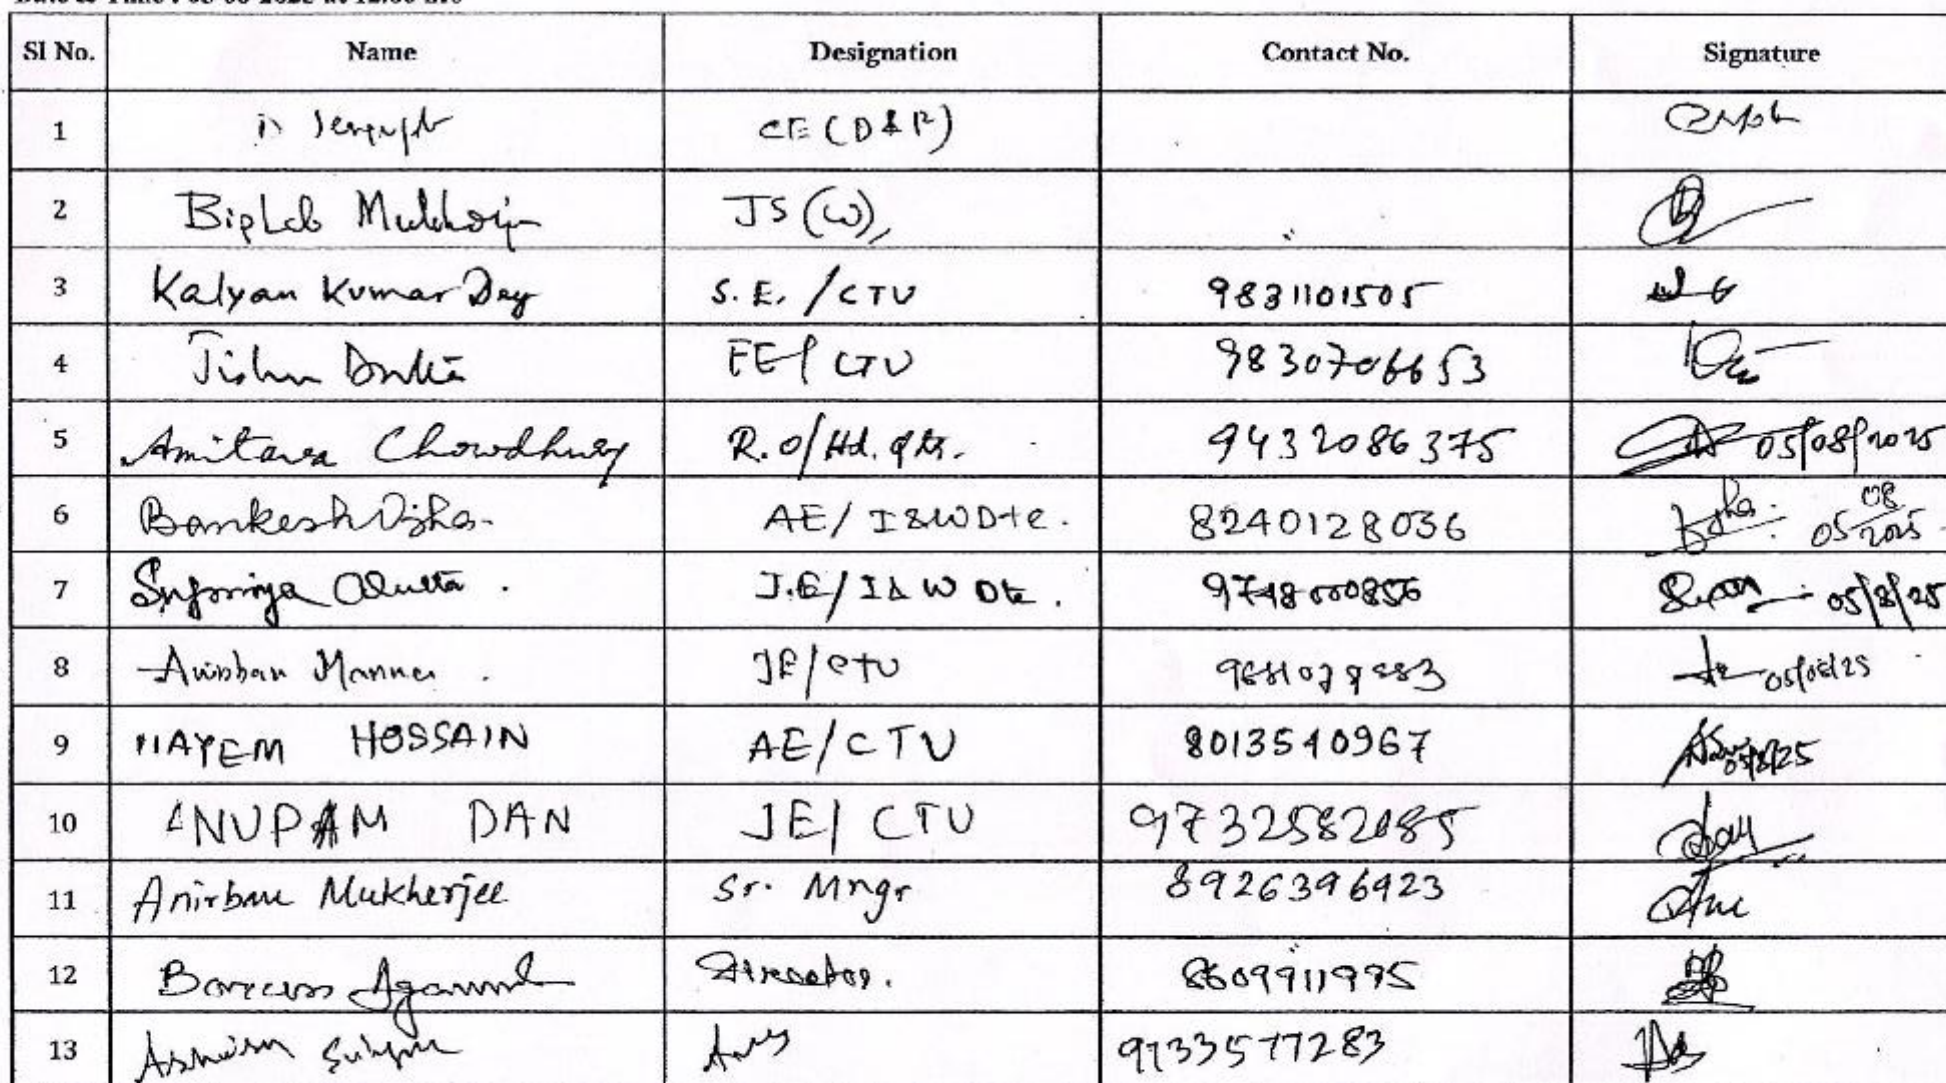 Sl No. Name Designation Contact No. Signature
1 CE (D & P)
2 Biplab JS (W)
3 Kalyan Kumar Dey S.E. / CTU 9831101505
4 Jishnu Dutta EE / CTU 9830706653
5 Amitava Chowdhury R.O/Hd. qtr. 9432086375 05/08/2025
6 Bankesh Ojha. AE/ I&WDte. 8240128036 05/08/2025
7 Supriya Dutta. J.E/I& W Dte. 05/8/25
8 Anirban Manna. JE/CTU 05/08/25
9 NAYEM HOSSAIN AE/CTU 8013540967 05/8/25
10 ANUPAM DAN JE/ CTU
11 Anirban Mukherjee Sr. Mngr 8926396923
12 Agarwal Director. 8609911995
13 9733577283